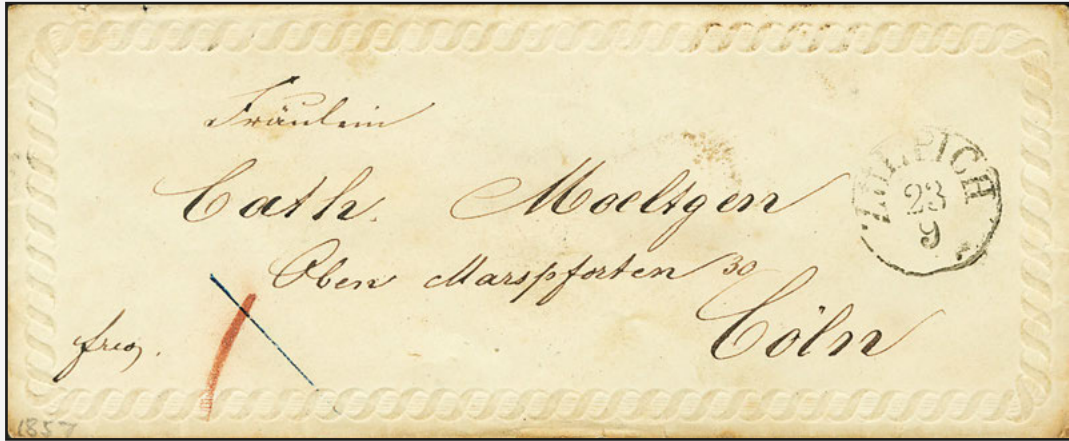 Fräulein
Cath. Moeltgen
Oben Marspforten 30
Cöln
frco.
ZÜLPICH
23
9
1857